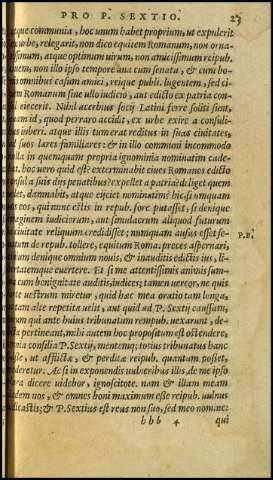 PRO P. SEXTIO. 23
atque communia, hoc unum habet proprium, ut expulerit
ex urbe, relegarit, non dico equitem Romanum, non or na-
tissimum, atque optimum uirum, non amicissimum reipub.
illo ipso tempore una cum senatu, & cum bo-
nis omnibus casum amici, reiq; publ. lugentem, sed ci-
uem Romanum sine ullo iudicio, aut edicto ex patria con-
sul eiecerit. Nihil acerbius socij Latini ferre soliti sunt,
quam id, quod perraro accidit, ex urbe exire a consuli-
bus iuberi. atque illis tum erat reditus in suas ciuitates,
ad suos lares familiares: & in illo communi incommodo
nulla in quemquam propria ignominia nominatim cade-
bat. hoc uero quid est? exterminabit ciues Romanos edicto
consul a suis dijs penatibus? expellet a patria? deliget quem
uolet, damnabit, atque eijciet nominatim? hic si umquam
uos eos, qui nunc estis in repub. fore putasset, si denique
imaginem iudiciorum, aut simulacrum aliquod futurum
in ciuitate reliquum credidisset; numquam ausus esset se-
natum de repub. tollere, equitum Rom. preces aspernari,
ciuium denique omnium nouis, & inauditis edictis ius, li-
bertatemque euertere. Et si me attentissimis animis sum-
ma cum benignitate auditis, iudices; tamen uereor, ne quis
forte uestrum miretur, quid haec mea oratio tam longa,
aut tam alte repetita uelit, aut quid ad P. Sextij caussam,
eorum qui ante huius tribunatum rempub. uexarunt, de-
licta pertineant. mihi autem hoc propositum est ostendere,
omnia consilia P. Sextij, mentemq; totius tribunatus hanc
fuisse, ut afflictae, & perditae reipub. quantum posset,
mederetur. Ac si in exponendis uulneribus illis, de me ipso
plura dicere uidebor, ignoscitote. nam & illam meam
cladem uos, & omnes boni maximum esse reipub. uulnus
iudicastis; & P. Sextius est reus non suo, sed meo nomine:
P.B.
bbb 4 qui